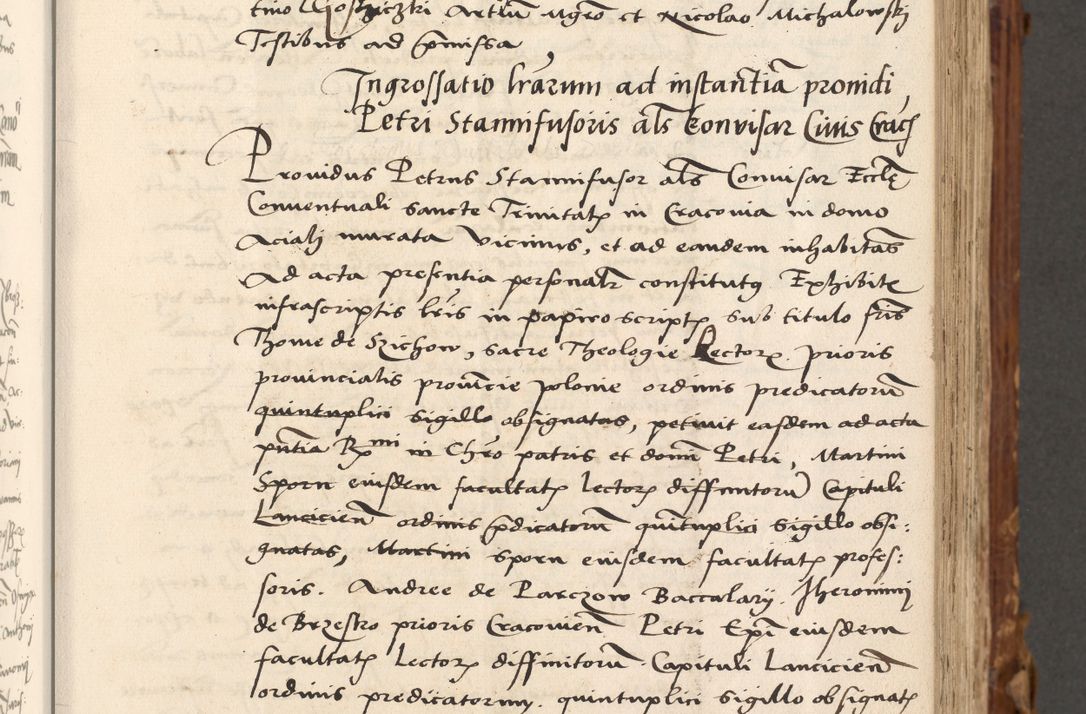 tino Gostziczki Artiū Mgrō et Nicolao Michalowski
Testibus ad p̄missa
Ingrossatio lrārum ad instantiā prouidi
Petri Stannifusoris als Konvisar Ciuis Crac
Prouidus Petrus Stannifusor als Conuisar Eccle
Conuentuali sancte Trinitatꝭ in Cracouia in domo
Aciali murata vicinus, et ad eandem inhabitās
Ad acta presentia personalr constitutꝰ Exhibitꝭ
infrascriptis lris in papiro scriptꝭ sub titulo fris
Thome de Szichow, sacre Theologie Lectorꝭ prioris
prouincialis prouincie polonie ordinis predicatorū
quintuplici sigillo obsignatas, petiuit easdem ad acta
pntia Rmi in Chrō patris et domi Petri, Martini
Sporn eiusdem facultatꝭ lectorꝭ diffinitorū Capituli
Lanciciēn ordinis p̄dicatorū quintuplici sigillo obsi:
gnatas, Martini sporn eiusdem facultatꝭ profes:
soris. Andree de Parczow Baccalarij. Jheronimi
de Brzesko prioris Cracouiēn Petri Epi eiusdem
facultatꝭ lectorꝭ diffinitorū Capituli Lanciciēn
ordinis predicatorum. quintuplici sigillo obsignatꝭ